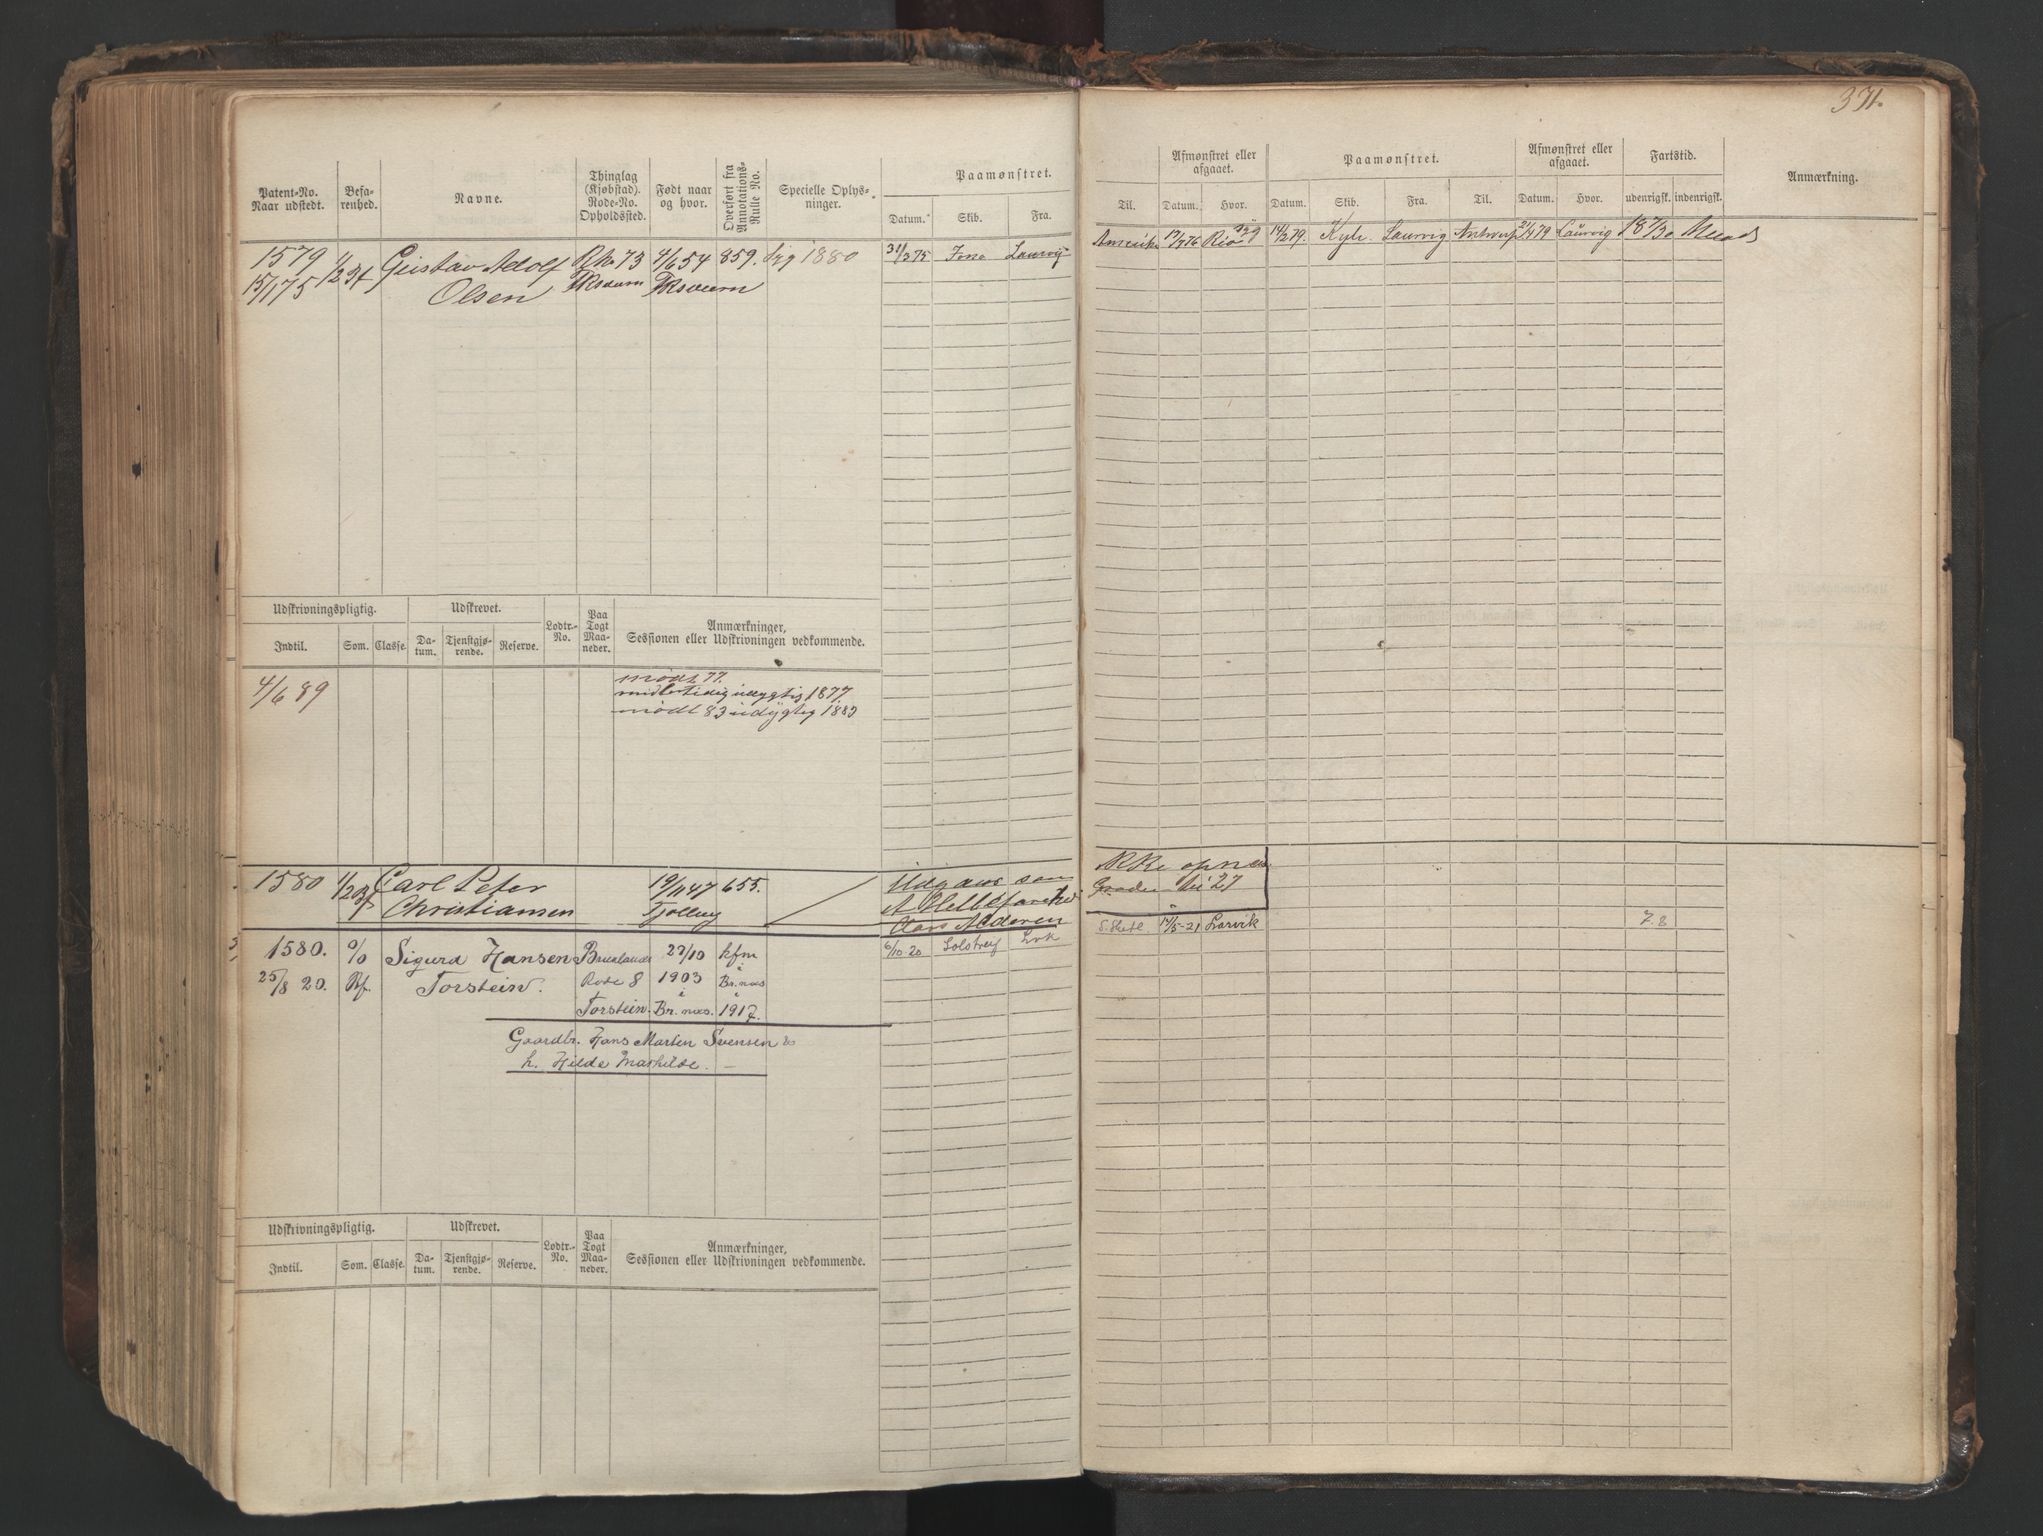 371.
Patent-No. Naar udstedt.
Befarenhed.
Navne.
Thinglag (Kjøbstad). Rode-No. Opholdssted.
Født naar og hvor.
Overført fra Annotations-Rulle No.
Specielle Oplysninger.
Paamønstret.
Datum. Skib. Fra.
Til.
Afmønstret eller afgaaet.
Datum. Hvor.
Paamønstret.
Datum. Skib. Fra. Til.
Afmønstret eller afgaaet.
Datum. Hvor.
Fartstid.
udenrigsk. indenrigsk.
Anmærkning.
1579 Gustav Adolf 73 4/6 54 859. Syg 1880 31/3 75 Laurvig
15/1 75 Olsen
Amerika 17/7 76 Rio syg 14/2 79. Laurvig Antwerp 2/4 79 Laurvig 18 7/30
Udskrivningspligtig. Udskrevet. Lodtr.-No. Paa Togt Maaneder. Anmærkninger, Sessionen eller Udskrivningen vedkommende.
Indtil. Som. Classe. Datum. Tjenstgjørende. Reserve.
4/6 89
mødt 77.
midlertidig udygtig 1877.
mødt 83 udygtig 1883
1580 Carl Peter 19/11 47 655. Udgaar som
Christiansen Tjølling
Aars Alderen
Ikke opnaa
Graden
1580. 0/0 Sigurd Hansen Brunlanes 27/10 kfm 6/10-20 Lvk
25/8 20. Torstein. Rode 8 1903 i Br.næs
Torstein. i Br.næs. i 1917.
Gaardbr. Hans Marten Svensen &
h. Hilde Mathilde. —
12/5-21 Larvik 7.8
Udskrivningspligtig. Udskrevet. Lodtr.-No. Paa Togt Maaneder. Anmærkninger, Sessionen eller Udskrivningen vedkommende.
Indtil. Som. Classe. Datum. Tjenstgjørende. Reserve.